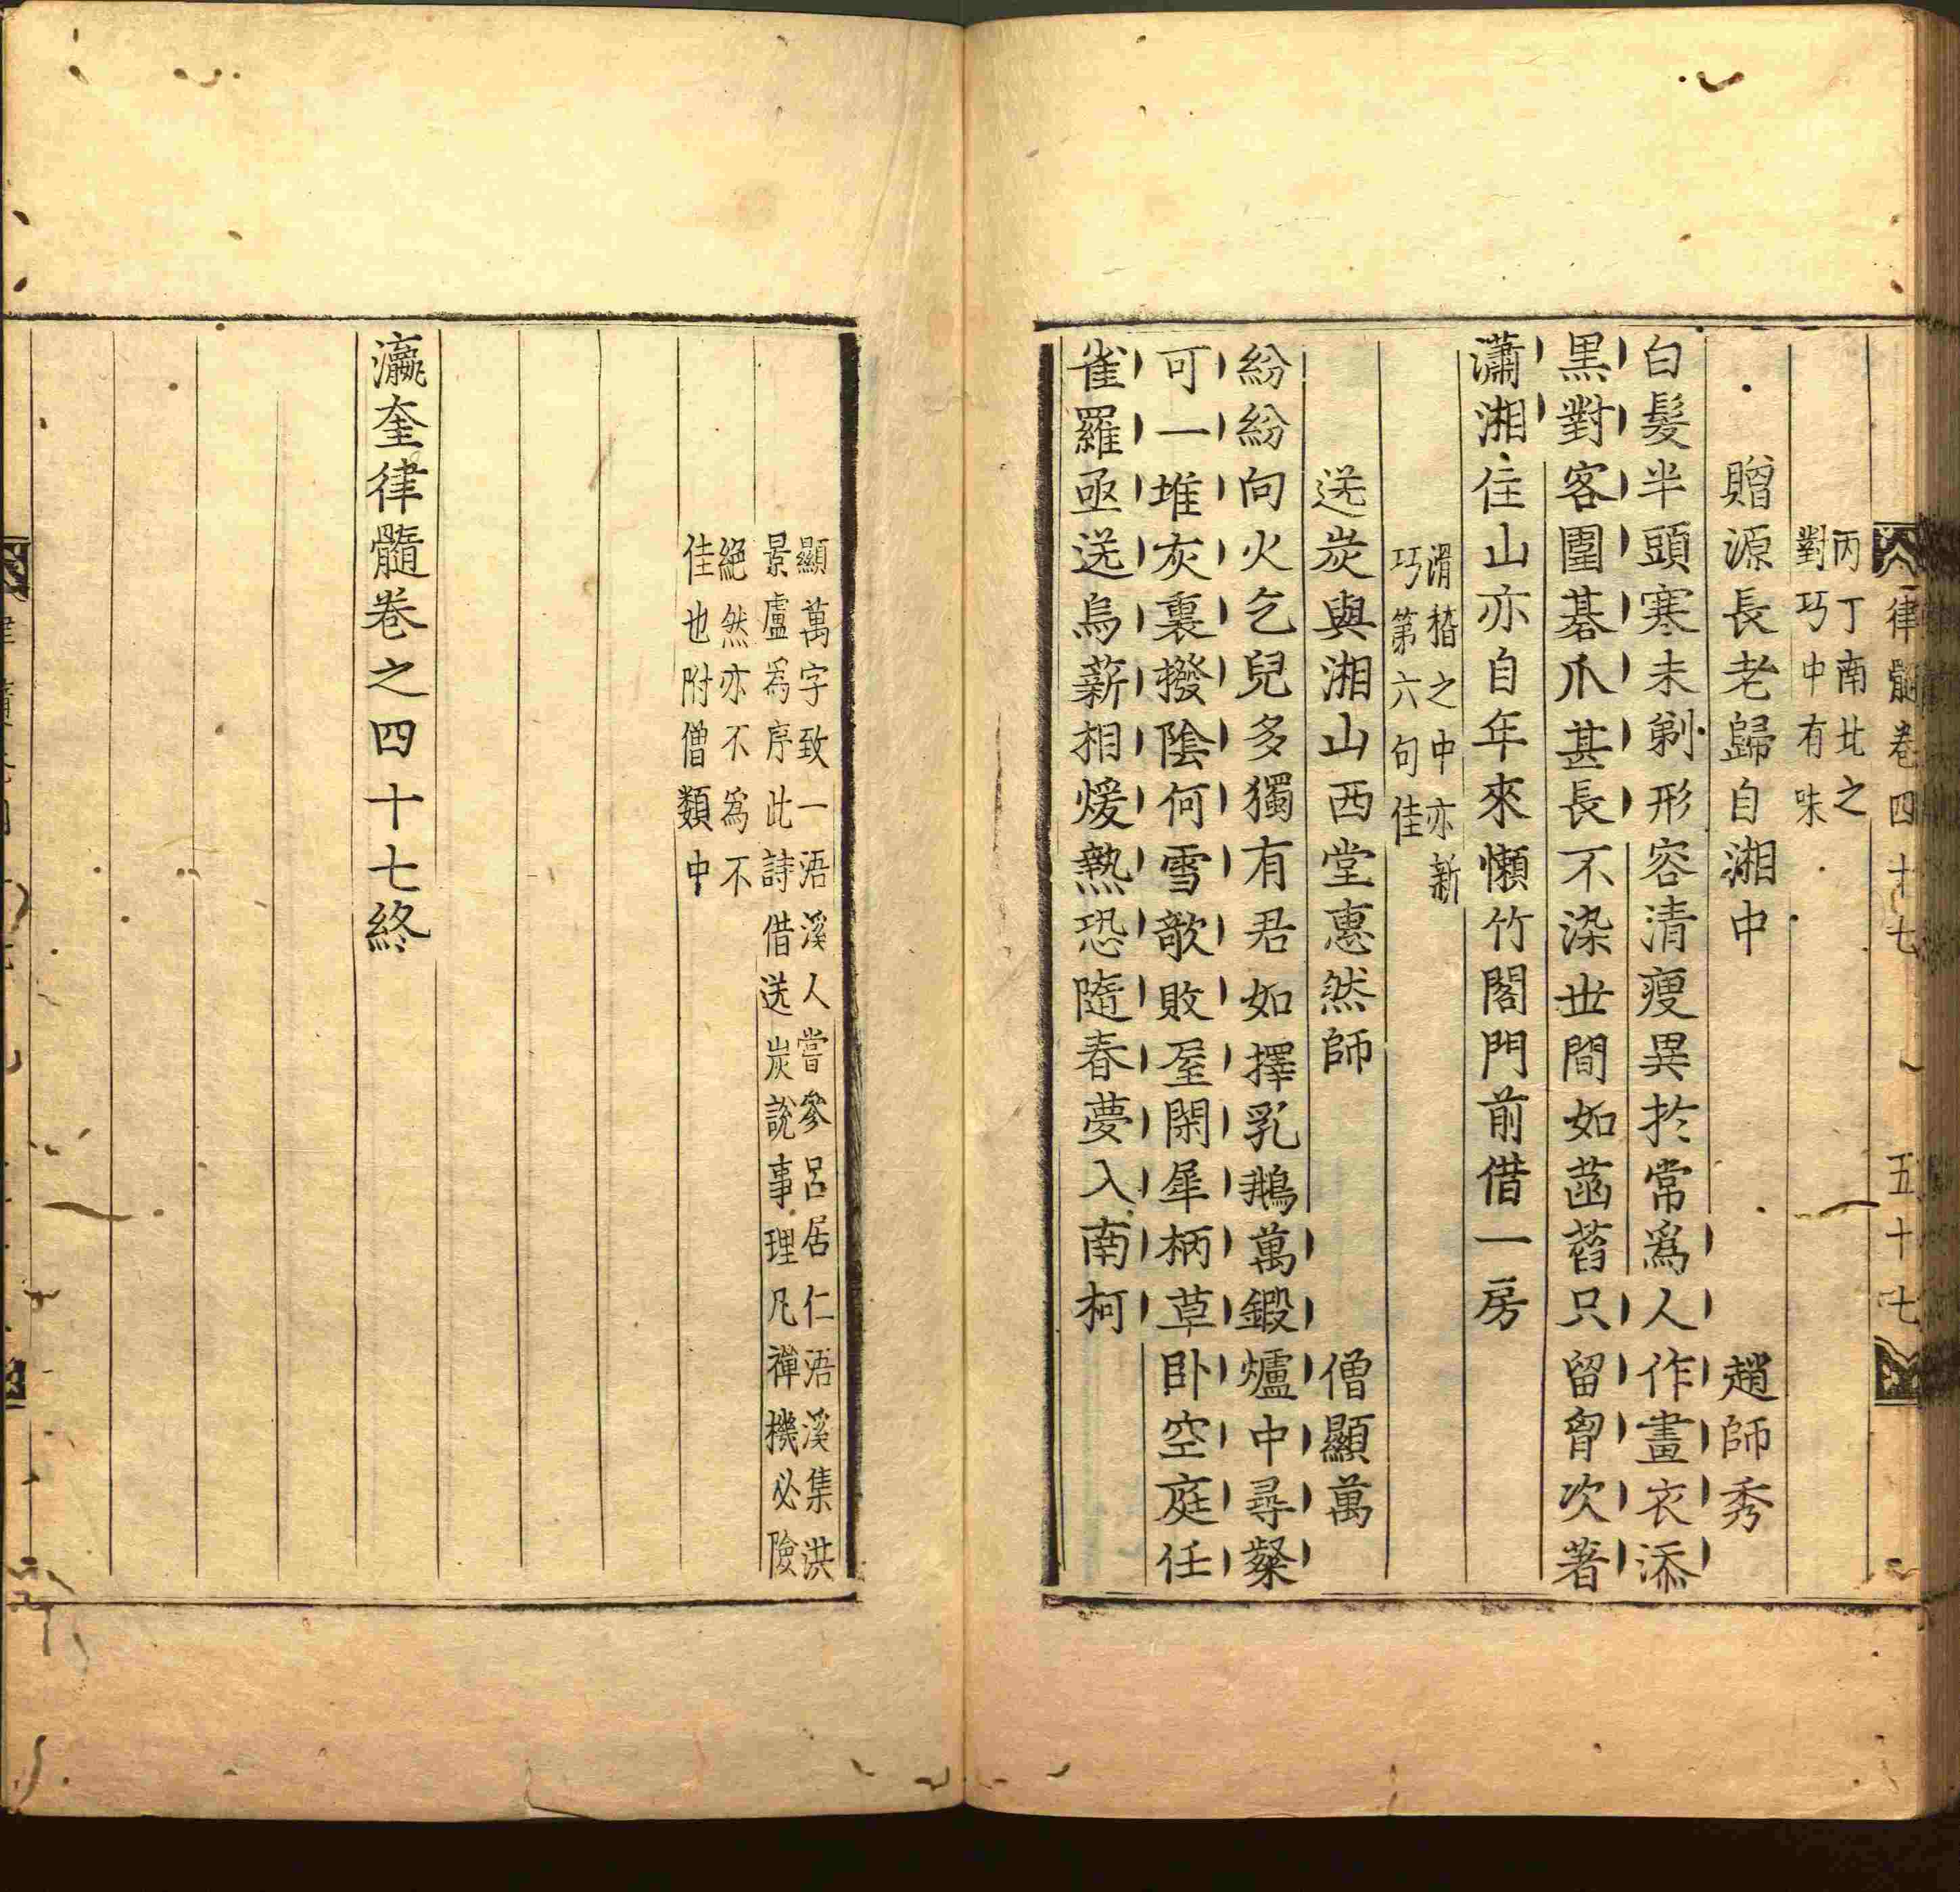 律髓卷四十七 五十七
丙丁南北之
對巧中有味
贈源長老歸自湘中 趙師秀
白髮半頭寒未剃形容清瘦異於常爲人作畫衣添
黒對客圍碁爪甚長不染世間如菡萏只留胷次著
瀟湘住山亦自年來懶竹閣門前借一房
滑稽之中亦新
巧第六句佳
送炭與湘山西堂惠然師 僧顯萬
紛紛向火乞兒多獨有君如擇乳鵝萬鍛爐中尋粲
可一堆灰裏撥陰何雪欹敗屋閑犀柄草卧空庭任
雀羅亟送烏薪相煖熱恐隨春夢入南柯
顯萬字致一浯溪人嘗參呂居仁浯溪集洪
景盧爲序此詩借送炭說事理凡禪機必險
絕然亦不爲不
佳也附僧類中
瀛奎律髓卷之四十七終